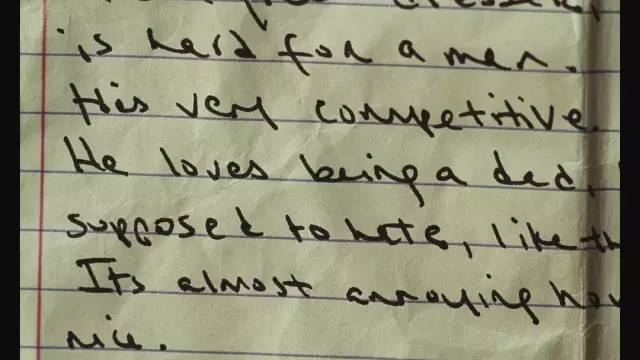 is hard for a man.
His very competitive.
He loves being a dad,
supposed to hate, like th
Its almost annoying how
nice.